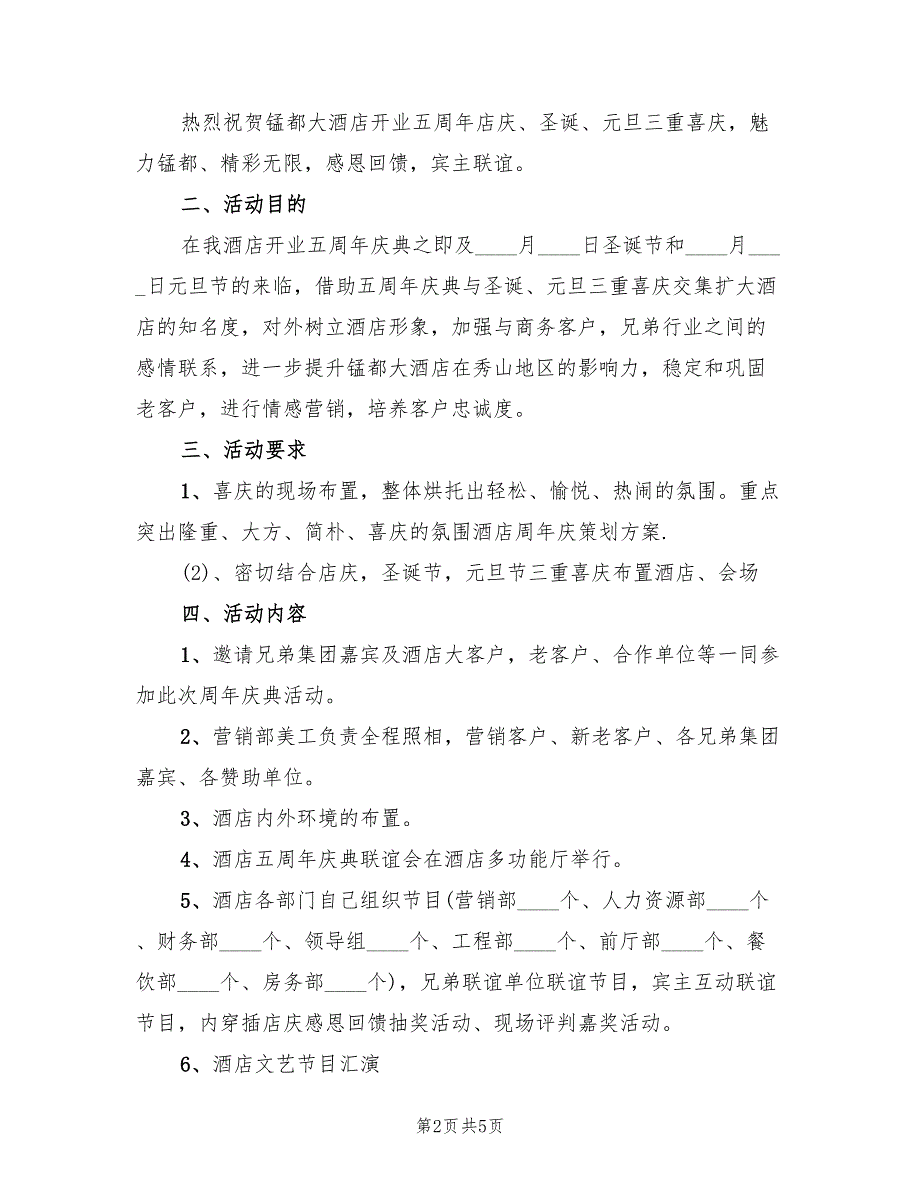 热烈祝贺锰都大酒店开业五周年店庆、圣诞、元旦三重喜庆，魅
力锰都、精彩无限，感恩回馈，宾主联谊。
二、活动目的
在我酒店开业五周年庆典之即及____月____日圣诞节和____月___
_日元旦节的来临，借助五周年庆典与圣诞、元旦三重喜庆交集扩大酒
店的知名度，对外树立酒店形象，加强与商务客户，兄弟行业之间的
感情联系，进一步提升锰都大酒店在秀山地区的影响力，稳定和巩固
老客户，进行情感营销，培养客户忠诚度。
三、活动要求
1、喜庆的现场布置，整体烘托出轻松、愉悦、热闹的氛围。重点
突出隆重、大方、简朴、喜庆的氛围酒店周年庆策划方案.
(2)、密切结合店庆，圣诞节，元旦节三重喜庆布置酒店、会场
四、活动内容
1、邀请兄弟集团嘉宾及酒店大客户，老客户、合作单位等一同参
加此次周年庆典活动。
2、营销部美工负责全程照相，营销客户、新老客户、各兄弟集团
嘉宾、各赞助单位。
3、酒店内外环境的布置。
4、酒店五周年庆典联谊会在酒店多功能厅举行。
5、酒店各部门自己组织节目(营销部____个、人力资源部____个
、财务部____个、领导组____个、工程部____个、前厅部____个、餐
饮部____个、房务部____个)，兄弟联谊单位联谊节目，宾主互动联谊
节目，内穿插店庆感恩回馈抽奖活动、现场评判嘉奖活动。
6、酒店文艺节目汇演
第2页 共5页